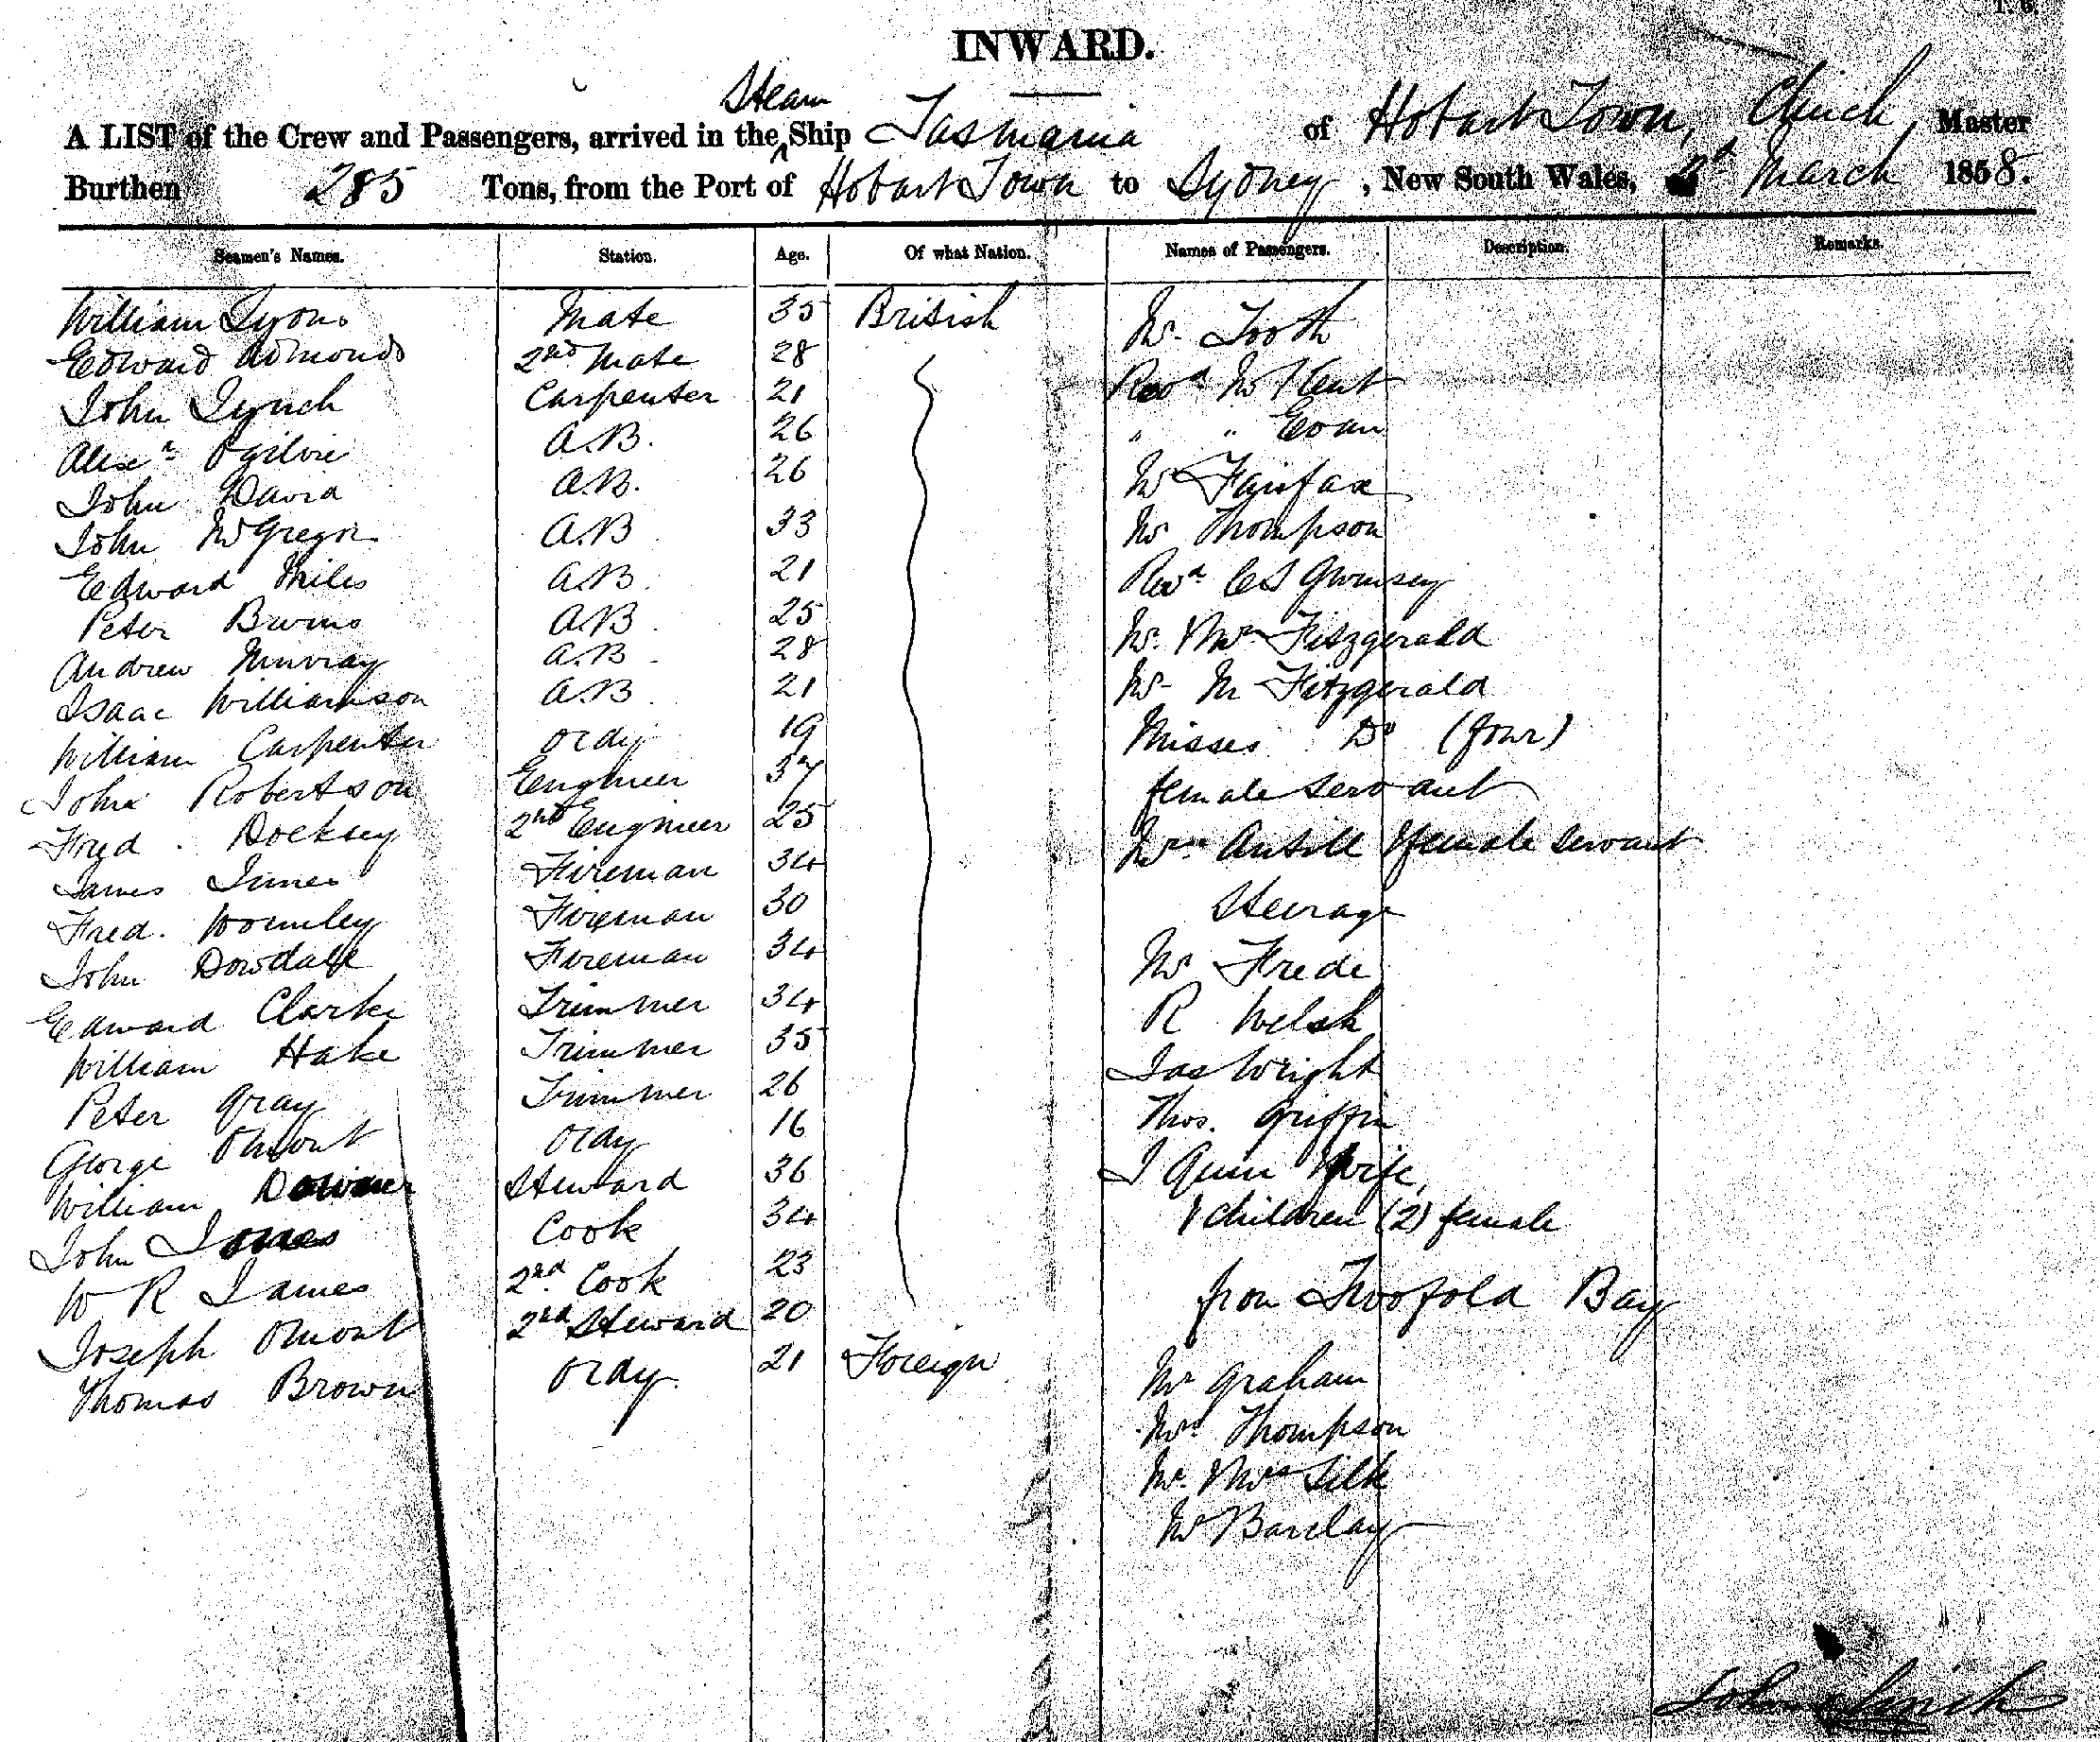 INWARD.
Steam
A LIST of the Crew and Passengers, arrived in the ^ Ship Tasmania of Hobart Town, Clinch Master
Burthen 285 Tons, from the Port of Hobart Town to Sydney, New South Wales, March 1858.
Seamen's Names. Station. Age. Of what Nation. Names of Passengers. Description. Remarks.
William Lyons Mate 35 British Mr Tooth
Edward Admonds 2nd Mate 28
John Lynch Carpenter 21 Revd Mr Kent
Alexr Ogilvie A.B. 26 " " Evan
John David A.B. 26 Mr Fairfax
John McGregor A.B 33 Mr Thompson
Edward Miles A.B. 21 Revd
Peter Burns A.B. 25 Mr & Mrs Fitzgerald
Andrew Murray A.B. 28
Isaac Williamson A.B. 21 Mr M Fitzgerald
William Carpenter ordy 19 Misses Do (four)
John Robertson Engineer 37 female servant
Fred. Docksey 2nd Engineer 25 Mrs Antill & female servant
James Innes Fireman 34
Fred. Fireman 30 Steerage
John Dowdall Fireman 34 Mr Frede
Edward Clarke Trimmer 34 R Welsh
William Hake Trimmer 35 Jas Wright
Peter Gray Trimmer 26 Thos. Griffin
George Omont ordy 16
William Steward 36 J Quin & wife,
John Jones Cook 34 & children (2) female
W R James 2nd Cook 23
Joseph Omont 2nd Steward 20 from Twofold Bay
Thomas Brown ordy. 21 Foreign Mr Graham
Mr Thompson
Mr & Mrs Silk
Mr Barclay
John Clinch